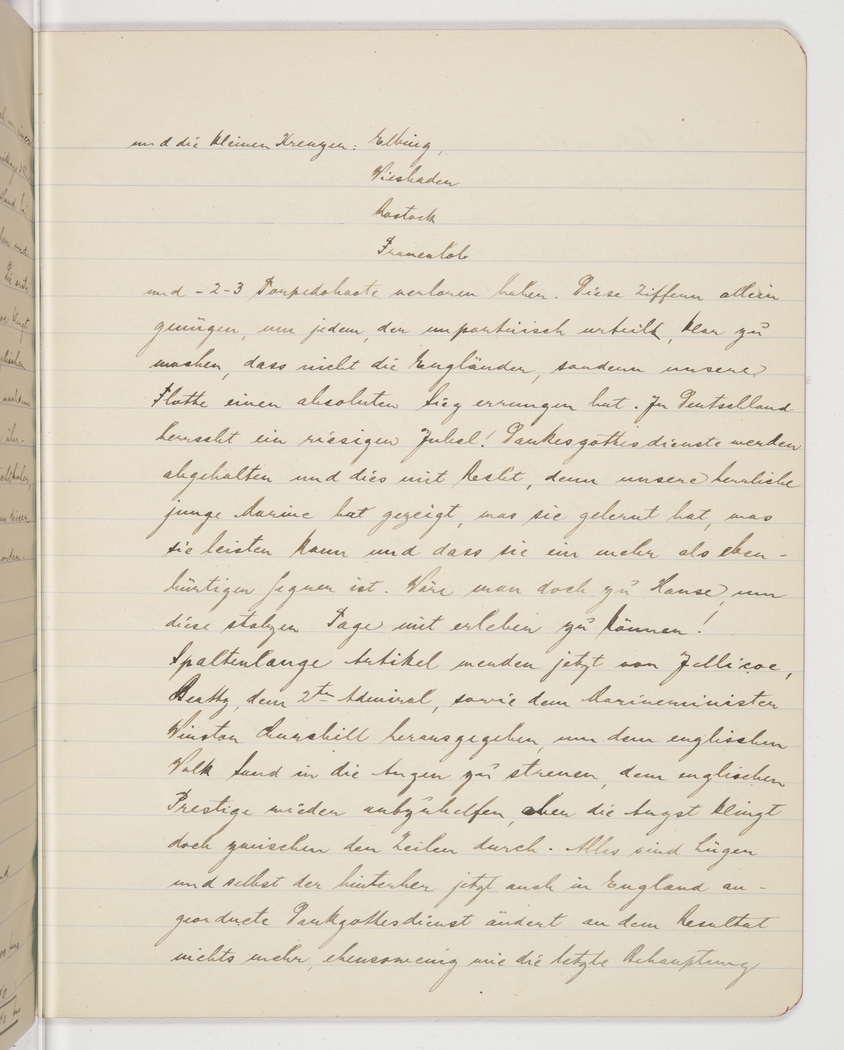 und die kleinen Kreuzer: Elbing,
Wiesbaden
Rostock
Frauenlob
und - 2-3 Torpedoboote verloren haben. Diese Ziffern allein
genügen, um jedem, der unparteiisch urteilt, klar zu
machen, dass nicht die Engländer, sondern unsere
Flotte einen absoluten Sieg errungen hat. In Deutschland
herrscht ein riesiger Jubel! Dankesgottesdienste werden
abgehalten und dies mit Recht, denn unsere herrliche
junge Marine hat gezeigt, was sie gelernt hat, was
sie leisten kann und dass sie ein mehr als eben-
bürtiger Gegner ist. Wäre man doch zu Hause, um
diese stolzen Tage mit erleben zu können!
Spaltenlange Artikel werden jetzt von Jellicoe,
Beatty, dem 2ten Admiral, sowie dem Marineminister
Winston Churchill herausgegeben, um dem englischen
Volk Sand in die Augen zu streuen, dem englischen
Prestige wieder aufzuhelfen, aber die Angst klingt
doch zwischen den Zeilen durch. Alles sind Lügen
und selbst der hinterher jetzt auch in England an-
geordnete Dankgottesdienst ändert an dem Resultat
nichts mehr, ebensowenig wie die letzte Behauptung